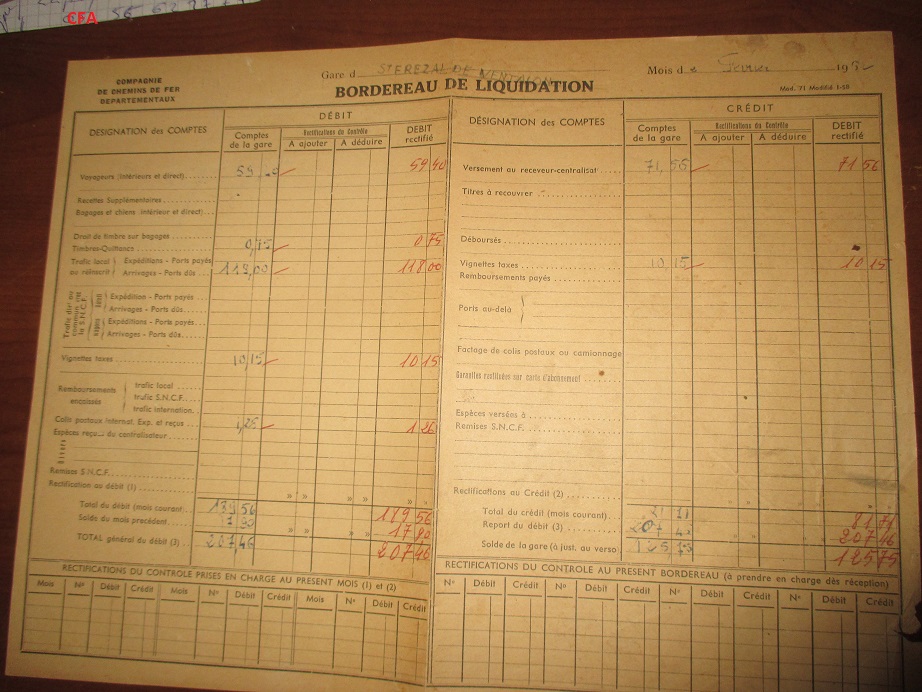 CFA
COMPAGNIE
DE CHEMINS DE FER
DEPARTEMENTAUX
Gare d STEREZAL DE VENTALON
Mois d e Fevrier 195
BORDEREAU DE LIQUIDATION
Mod. 71 Modifié 1-58
DÉBIT
DÉSIGNATION des COMPTES
Comptes de la gare
Rectifications du Contrôle
A ajouter
A déduire
DEBIT rectifié
Voyageurs (intérieurs et direct)
59 40
Recettes Supplémentaires
Bagages et chiens intérieur et direct)
Droit de timbre sur bagages
Timbres-Quittance
0,75
0 75
Trafic local au réinscrit
Expéditions - Ports payés
Arrivages - Ports dûs
118,00
118.00
Expédition - Ports payés
Arrivages - Ports dûs
Expéditions - Ports payés
Arrivages - Ports dûs
Vignettes taxes
10,15
10 15
Remboursements encaissés
trafic local
trafic S.N.C.F.
trafic internation.
Colis postaux internat. Exp. et reçus
1,26
1 26
Espèces reçu du centralisateur
Remises S.N.C.F.
Rectification au débit (1)
Total du débit (mois courant)
189 56
189 56
Solde du mois précédent
17 90
17 90
TOTAL général du débit (3)
207,46
207 46
RECTIFICATIONS DU CONTROLE PRISES EN CHARGE AU PRESENT MOIS (1) et (2)
Mois N° Débit Crédit Mois N° Débit Crédit Mois N° Débit Crédit
CRÉDIT
DÉSIGNATION des COMPTES
Comptes de la gare
Rectifications du Contrôle
A ajouter
A déduire
DEBIT rectifié
Versement au receveur-centralisat
71,56
71 56
Titres à recouvrer
Déboursés
Vignettes taxes
10 15
10 15
Remboursements payés
Ports au-delà
Factage de colis postaux ou camionnage
Garanties restituées sur carte d'abonnement
Espèces versées à
Remises S.N.C.F.
Rectifications au Crédit (2)
Total du crédit (mois courant)
81 71
Report du débit (3)
207 46
207 46
Solde de la gare (à just. au verso)
125 75
125 75
RECTIFICATIONS DU CONTROLE AU PRESENT BORDEREAU (à prendre en charge dès réception)
N° Débit Crédit N° Débit Crédit N° Débit Crédit N° Débit Crédit